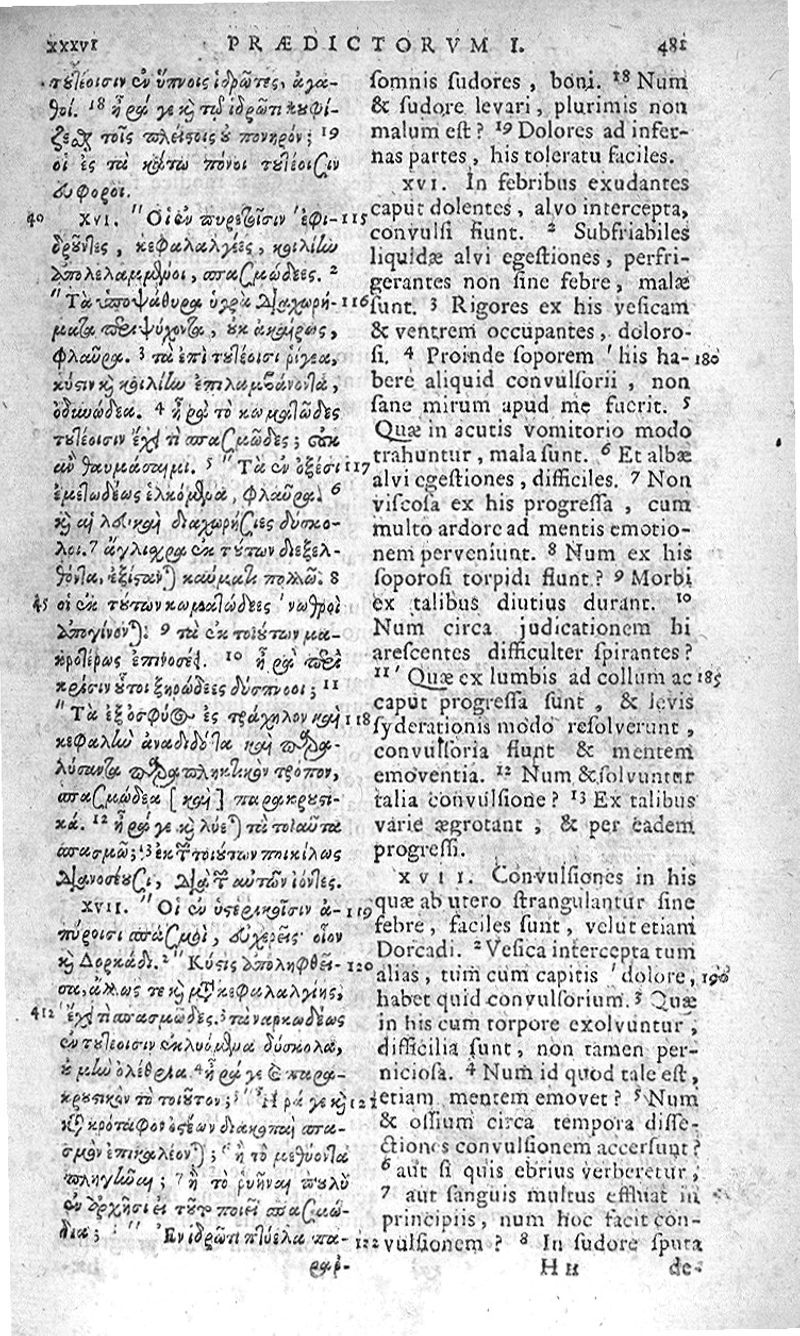 XXXVI PRÆDICTORVM I. 481
τουτέοισιν ἐν ὕπνοις ἱδρῶτες, ἀγα-
θοί. 18 ἦ ῥά γε καὶ τῷ ἱδρῶτι κουφί-
ζεσθαι τοῖς πλείστοις οὐ πονηρόν; 19
οἱ ἐς τὰ κάτω πόνοι τουτέοισιν
εὔφοροι.
40 XVI. "Οἱ ἐν πυρετοῖσιν ἐφι- 115
δροῦντες, κεφαλαλγέες, κοιλίην
ἀπολελαμμένοι, σπασμώδεες. 2
"Τὰ ὑποψάθυρα ὑγρὰ διαχωρή- 116
ματα περιψύχοντα, οὐκ ἀπύρως,
φλαῦρα. 3 τὰ ἐπὶ τουτέοισι ῥίγεα,
κύστιν καὶ κοιλίην ἐπιλαμβάνοντα,
ὀδυνώδεα. 4 ἦ ῥα τὸ κωματῶδες
τουτέοισιν ἔχει τι σπασμῶδες; οὐκ
ἂν θαυμάσαιμι. 5 "Τὰ ἐν ὀξέσι 117
ἐμετωδέως ἑλκόμενα, φλαῦρα. 6
καὶ αἱ λευκαὶ διαχωρήσιες δύσκο-
λοι. 7 ἄγλισχρα ἐκ τούτων διεξελ-
θόντα, ἐξίσταται καύματι πολλῷ. 8
45 οἱ ἐκ τούτων κωματώδεες 'νωθροὶ
ἀπογίνονται; 9 τὰ ἐκ τοιούτων μα-
κροτέρως ἐπινοσέει. 10 ἦ ῥα περὶ
κρίσιν οὗτοι ξηρώδεες δύσπνοοι; 11
"Τὰ ἐξ ὀσφύος ἐς τράχηλον καὶ 118
κεφαλὴν ἀναδιδόντα καὶ παρα-
λύσαντα παραπληκτικὸν τρόπον,
σπασμώδεα [καὶ] παρακρουστι-
κά. 12 ἦ ῥά γε καὶ λύεται τὰ τοιαῦτα
σπασμῷ; 13 ἐκ τῶν τοιούτων ποικίλως
διανοσέουσι, διὰ τῶν αὐτῶν ἰόντες.
XVII. "Οἱ ἐν ὑστερικοῖσιν ἀ- 119
πύροισι σπασμοὶ, εὐχερεῖς οἷον
καὶ Δορκάδι. 2 "Κύστις ἀποληφθεῖ- 120
σα, ἄλλως τε καὶ μετὰ κεφαλαλγίης,
412 'ἔχει τι σπασμῶδες. 3 τὰ ναρκωδέως
ἐν τουτέοισιν ἐκλυόμενα δύσκολα,
οὐ μὴν ὀλέθρια. 4 ἦ ῥά γε καὶ παρα-
κρουστικὸν τὸ τοιοῦτον; 5 "Ἦ ῥά γε καὶ 121
κατὰ κρόταφον ὀστέων διακοπαὶ σπα-
σμὸν ἐπικαλέονται; 6 ἢ τὸ μεθύοντα
πληγῆναι; 7 ἢ τὸ ῥυῆναι πουλὺ
ἐν ἀρχῇσι εἰ τοῦτο ποιεῖ σπασμώ-
δεα; 8 "Ἐν ἱδρῶτι πτύελα πα- 122
ραρ-
somnis sudores, boni. 18 Num
& sudore levari, plurimis non
malum est? 19 Dolores ad infer-
nas partes, his toleratu faciles.
XVI. In febribus exudantes
caput dolentes, alvo intercepta,
convulsi fiunt. 2 Subfriabiles
liquidæ alvi egestiones, perfri-
gerantes non sine febre, malæ
sunt. 3 Rigores ex his vesicam
& ventrem occupantes, doloro-
si. 4 Proinde soporem 'his ha- 180
bere aliquid convulsorii, non
sane mirum apud me fuerit. 5
Quæ in acutis vomitorio modo
trahuntur, mala sunt. 6 Et albæ
alvi egestiones, difficiles. 7 Non
viscosa ex his progressa, cum
multo ardore ad mentis emotio-
nem perveniunt. 8 Num ex his
soporosi torpidi fiunt? 9 Morbi
ex talibus diutius durant. 10
Num circa judicationem hi
arescentes difficulter spirantes?
11 'Quæ ex lumbis ad collum ac 185
caput progressa sunt, & levis
syderationis modo resolverunt,
convulsoria fiunt & mentem
emoventia. 12 Num & solvuntur
talia convulsione? 13 Ex talibus
varie ægrotant, & per eadem
progressi.
XVII. Convulsiones in his
quæ ab utero strangulantur sine
febre, faciles sunt, velut etiam
Dorcadi. 2 Vesica intercepta tum
alias, tum cum capitis 'dolore, 190
habet quid convulsorium. 3 Quæ
in his cum torpore exolvuntur,
difficilia sunt, non tamen per-
niciosa. 4 Num id quod tale est,
etiam mentem emovet? 5 Num
& ossium circa tempora disse-
ctiones convulsionem accersunt?
6 aut si quis ebrius verberetur,
7 aut sanguis multus effluat in
principiis, num hoc facit con-
vulsionem? 8 In sudore sputa
H ii de-